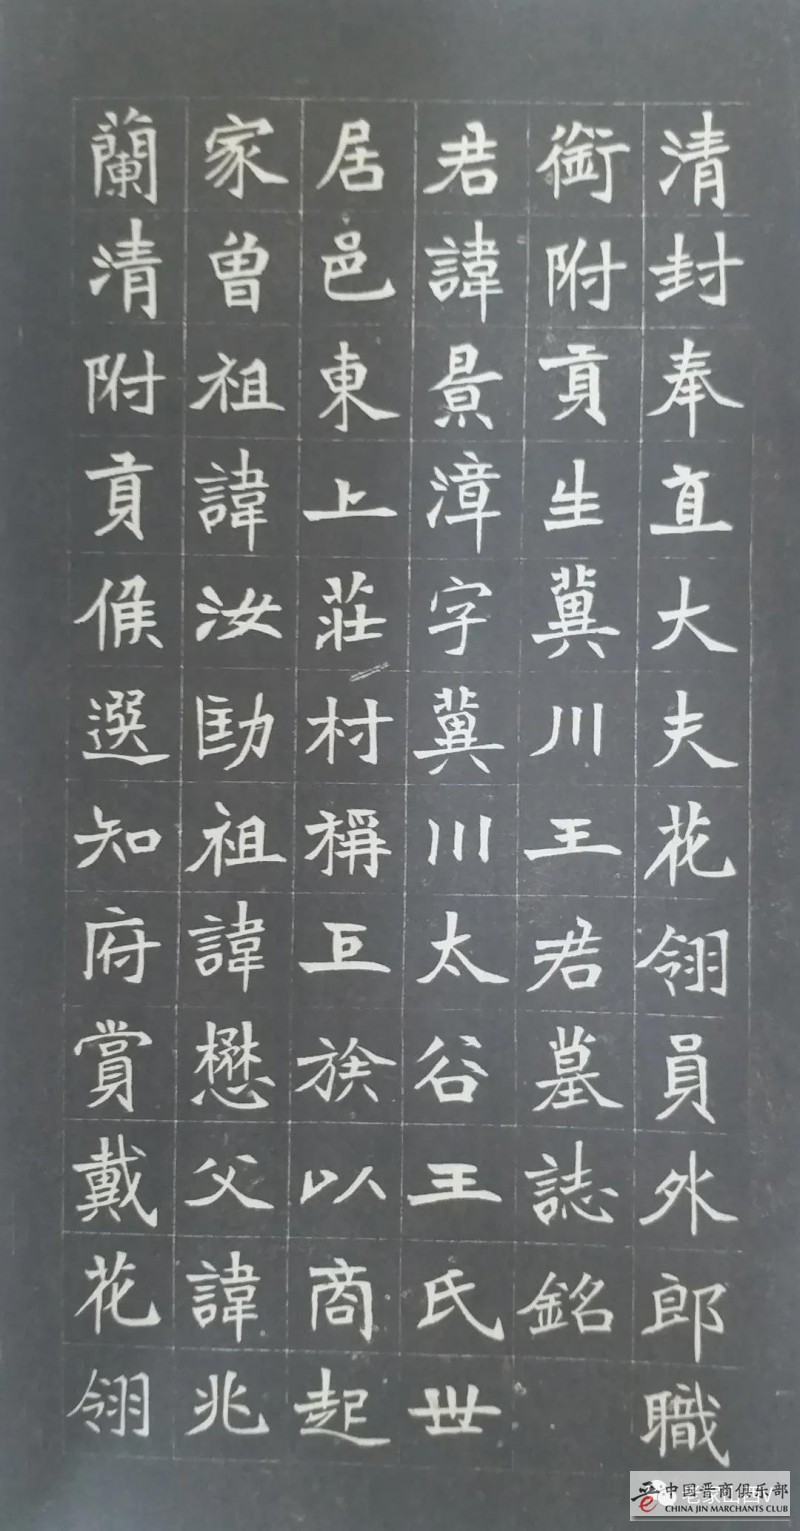 清封奉直大夫花翎員外郎職
銜附貢生冀川王君墓誌銘
君諱景漳字冀川太谷王氏世
居邑東上莊村稱巨族以商起
家曾祖諱汝勛祖諱懋父諱兆
蘭清附貢候選知府賞戴花翎
中国晋商俱乐部
CHINA JIN MARCHANTS CLUB